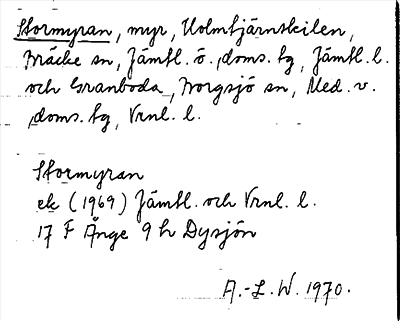 Stormyran, myr, Holmtjärnskilen,
Bräcke sn, Jämtl. ö. doms. tg, Jämtl. l.
och Granboda, Borgsjö sn, Med. v.
doms. tg, Vrnl. l.
Stormyran
ek (1969) Jämtl. och Vrnl. l.
17 F Ånge 9 h Dysjön
A.-L. W. 1970.